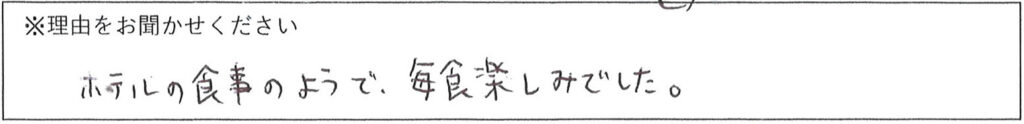 ※理由をお聞かせください
ホテルの食事のようで、毎食楽しみでした。